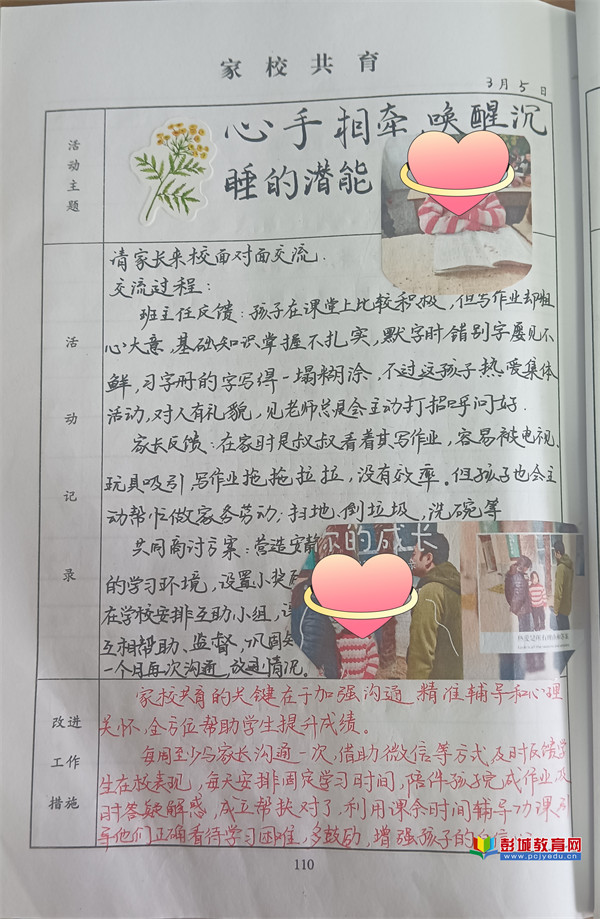 家校共育
3月5日
活动主题
心手相牵,唤醒沉
睡的潜能
活动记录
请家长来校面对面交流.
交流过程:
班主任反馈:孩子在课堂上比较积极,但写作业却粗
心大意,基础知识掌握不扎实,默字时错别字屡见不
鲜,习字册的字写得一塌糊涂,不过这孩子热爱集体
活动,对人有礼貌,见老师总是会主动打招呼问好.
家长反馈:在家时是叔叔看着其写作业,容易被电视、
玩具吸引写作业拖拖拉拉,没有效率。但孩子也会主
动帮忙做家务劳动:扫地、倒垃圾,洗碗等
共同商讨方案:营造安静
的学习环境,设置小奖
在学校安排互助小组,
互相帮助、监督,巩固
一个月每次沟通,放通情况。
你的成长
改进工作措施
家校共育的关键在于加强沟通 精准辅导和心理
关怀,全方位帮助学生提升成绩。
每周至少与家长沟通一次,借助微信等方式及时反馈学
生在校表现,每天安排固定学习时间,陪伴孩子完成作业,及
时答疑解惑,成立帮扶对子,利用课余时间辅导功课,引
导他们正确看待学习困难,多鼓励,增强孩子的自信
110
彭城教育网
www.pcjyedu.cn